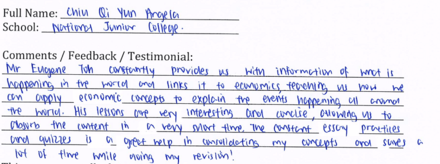 Full Name: Chiu Qi Yun Angela
School: National Junior College.
Comments / Feedback / Testimonial:
Mr Eugene Toh constantly provides us with information of what is
happening in the world and links it to economics, teaching us how we
can apply economic concepts to explain the events happening all around
the world. His lessons are very interesting and concise, allowing us to
absorb the content in a very short time. The constant essay practices
and quizzes is a great help in consolidating my concepts and saves a
lot of time while doing my revision!